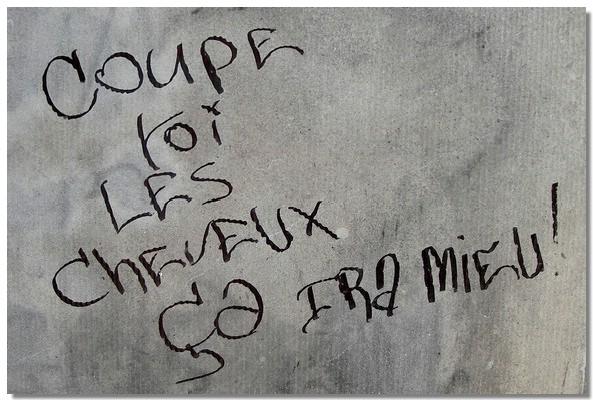 COUPE
TOi
LES
CHEVEUX
ÇA IRA MiEU!